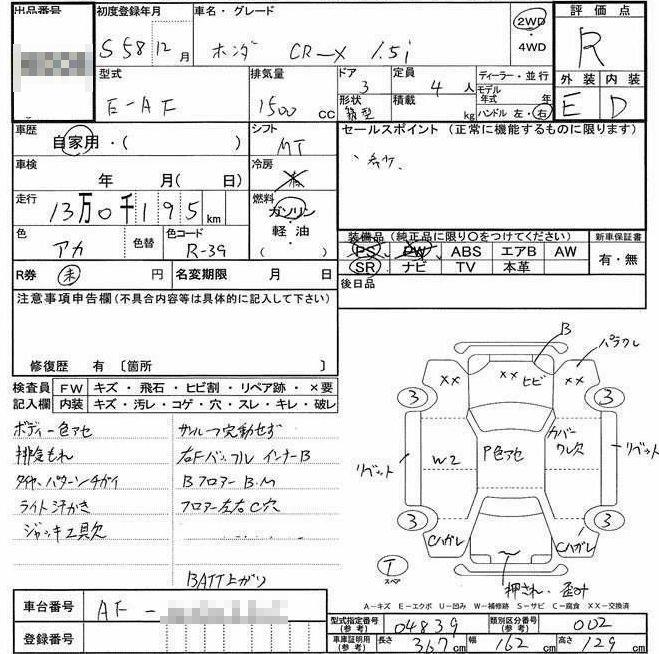 出品番号 初度登録年月 車名・グレード 評価点
S58 12月 ホンダ CR-X 1.5i 2WD ・4WD R
型式 排気量 ドア 定員 ディーラー・並行 外装 内装
E-AF 1500 CC 3 4人 モデル年式 年 E D
形状 箱型 積載 kg ハンドル 左・右
車歴 シフト セールスポイント (正常に機能するものに限ります)
自家用・( ) MT
車検 冷房
年 月( 日)
走行 燃料
13万0千195km ガソリン
軽油
( )
色 色替 色コード 装備品 (純正品に限り〇をつけてください) 新車保証書
アカ R-39 PS PW ABS エアB AW 有・無
R券 未 円 名変期限 月 日 SR ナビ TV 本革
注意事項申告欄(不具合内容等は具体的に記入して下さい) 後日品
修復歴 有 〔箇所 〕
検査員 FW キズ・飛石・ヒビ割・リペア跡・×要
記入欄 内装 キズ・汚レ・コゲ・穴・スレ・キレ・破レ
ボディー色アセ サンルーフ作動せず
排気もれ 右Fバッフル インナーB
タイヤパターンチガイ Bフロアー B.M
ライト汗かき フロアー左右C穴
ジャッキ工具欠
BATT上がり
B
パラクレ
×× ×× ヒビ ××
3 3
リベット W2 P色アセ カバーワレ欠 リベット
3 3
Cハガレ Cハガレ
T スペア
押され・歪み
A-キズ E-エクボ U-凹み W-補修跡 S-サビ C-腐食 XX-交換済
車台番号 AF-
登録番号
型式指定番号(参考) 04839 類別区分番号(参考) 002
車庫証明用(参考) 長さ 367cm 幅 162cm 高さ 129cm